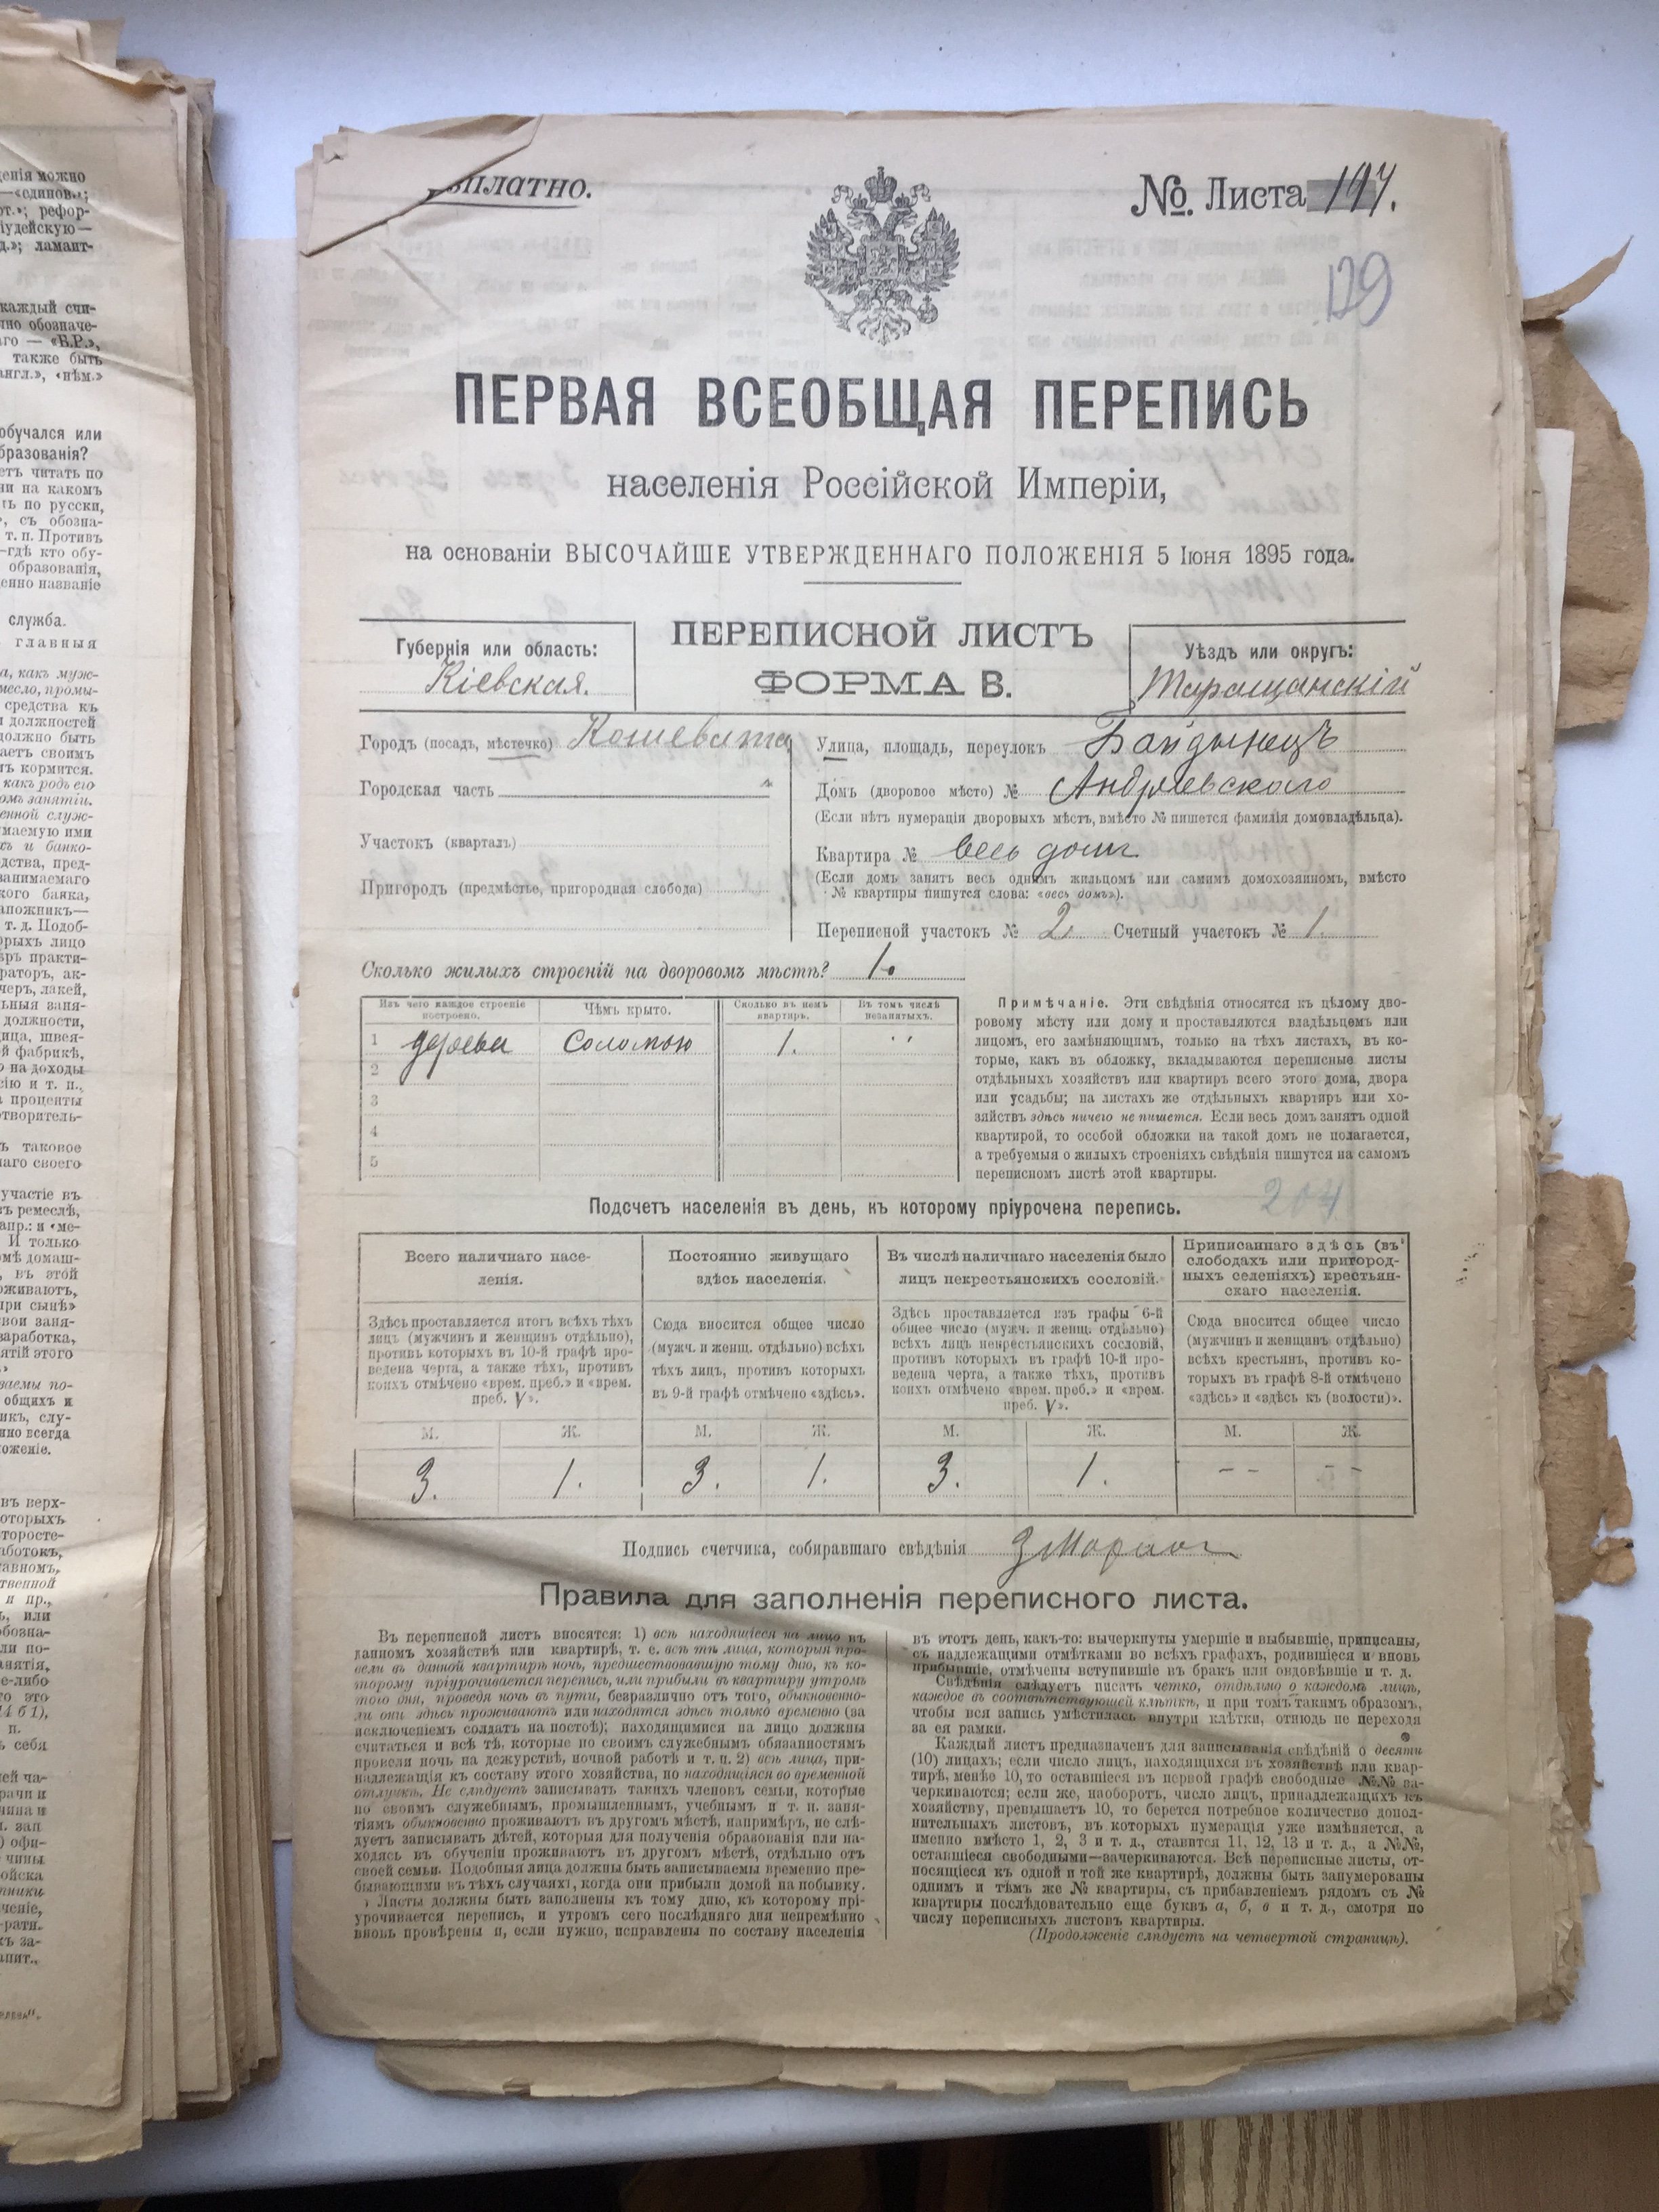 енія можно
—«единов.»;
рефор-
іудейскую—
д.»; ламаит-
каждый счи-
обозначе-
аго — «Б.Р.»,
также быть
англ.», «нѣм.»
обучался или
бразованія?
етъ читать по
ни на какомъ
ть по русски,
съ обозна-
т. п. Противъ
—гдѣ кто обу-
образованія,
енно названіе
служба.
главныя
платно.
№ Листа 197.
129
ПЕРВАЯ ВСЕОБЩАЯ ПЕРЕПИСЬ
населенія Россійской Имперіи,
на основаніи ВЫСОЧАЙШЕ УТВЕРЖДЕННАГО ПОЛОЖЕНІЯ 5 Іюня 1895 года.
Губернія или область:
Кіевская.
ПЕРЕПИСНОЙ ЛИСТЪ
ФОРМА В.
Уѣздъ или округъ:
Таращанскій
Городъ (посадъ, мѣстечко) Кошевата
Городская часть
Участокъ (кварталъ)
Пригородъ (предмѣстье, пригородная слобода)
Улица, площадь, переулокъ Байдынецъ
Домъ (дворовое мѣсто) № Андріевскаго
(Если нѣтъ нумераціи дворовыхъ мѣстъ, вмѣсто № пишется фамилія домовладѣльца).
Квартира № весь домъ
(Если домъ занятъ весь однимъ жильцомъ или самимъ домохозяиномъ, вмѣсто
№ квартиры пишутся слова: «весь домъ»).
Переписной участокъ № 2 Счетный участокъ № 1.
Сколько жилыхъ строеній на дворовомъ мѣстѣ? 1.
Изъ чего каждое строеніе построено.
Чѣмъ крыто.
Сколько въ немъ квартиръ.
Въ томъ числѣ незанятыхъ.
1 дерева Соломою 1. ''
2
3
4
5
Примѣчаніе. Эти свѣдѣнія относятся къ цѣлому дво-
ровому мѣсту или дому и проставляются владѣльцемъ или
лицомъ, его замѣняющимъ, только на тѣхъ листахъ, въ ко-
торые, какъ въ обложку, вкладываются переписные листы
отдѣльныхъ хозяйствъ или квартиръ всего этого дома, двора
или усадьбы; на листахъ же отдѣльныхъ квартиръ или хо-
зяйствъ здѣсь ничего не пишется. Если весь домъ занятъ одной
квартирой, то особой обложки на такой домъ не полагается,
а требуемыя о жилыхъ строеніяхъ свѣдѣнія пишутся на самомъ
переписномъ листѣ этой квартиры.
204
Подсчетъ населенія въ день, къ которому пріурочена перепись.
Всего наличнаго насе-
ленія.
Здѣсь проставляется итогъ всѣхъ тѣхъ
лицъ (мужчинъ и женщинъ отдѣльно),
противъ которыхъ въ 10-й графѣ про-
ведена черта, а также тѣхъ, противъ
коихъ отмѣчено «врем. преб.» и «врем.
преб. V».
Постоянно живущаго
здѣсь населенія.
Сюда вносится общее число
(мужч. и женщ. отдѣльно) всѣхъ
тѣхъ лицъ, противъ которыхъ
въ 9-й графѣ отмѣчено «здѣсь».
Въ числѣ наличнаго населенія было
лицъ некрестьянскихъ сословій.
Здѣсь проставляется изъ графы 6-й
общее число (мужч. и женщ. отдѣльно)
всѣхъ лицъ некрестьянскихъ сословій,
противъ которыхъ въ графѣ 10-й про-
ведена черта, а также тѣхъ, противъ
коихъ отмѣчено «врем. преб.» и «врем.
преб. V».
Приписаннаго здѣсь (въ
слободахъ или пригород-
ныхъ селеніяхъ) крестьян-
скаго населенія.
Сюда вносится общее число
(мужчинъ и женщинъ отдѣльно)
всѣхъ крестьянъ, противъ ко-
торыхъ въ графѣ 8-й отмѣчено
«здѣсь» и «здѣсь къ (волости)».
М. Ж. М. Ж. М. Ж. М. Ж.
3. 1. 3. 1. 3. 1. -- --
Подпись счетчика, собиравшаго свѣдѣнія
Правила для заполненія переписного листа.
Въ переписной листъ вносятся: 1) всѣ находящіеся на лицо въ
данномъ хозяйствѣ или квартирѣ, т. е. всѣ тѣ лица, которыя про-
вели въ данной квартирѣ ночь, предшествовавшую тому дню, къ ко-
торому пріурочивается перепись, или прибыли въ квартиру утромъ
того дня, проведя ночь въ пути, безразлично от того, обыкновенно-
ли они здѣсь проживаютъ или находятся здѣсь только временно (за
исключеніемъ солдатъ на постоѣ); находящимися на лицо должны
считаться и всѣ тѣ, которые по своимъ служебнымъ обязанностямъ
провели ночь на дежурствѣ, ночной работѣ и т. п. 2) всѣ лица, при-
надлежащія къ составу этого хозяйства, но находящіяся во временной
отлучкѣ. Не слѣдуетъ записывать такихъ членовъ семьи, которые
по своимъ служебнымъ, промышленнымъ, учебнымъ и т. п. заня-
тіямъ обыкновенно проживаютъ въ другомъ мѣстѣ, напримѣръ, не слѣ-
дуетъ записывать дѣтей, которыя для полученія образованія или на-
ходясь въ обученіи проживаютъ въ другомъ мѣстѣ, отдѣльно отъ
своей семьи. Подобныя лица должны быть записываемы временно пре-
бывающими въ тѣхъ случаяхъ, когда они прибыли домой на побывку.
Листы должны быть заполнены къ тому дню, къ которому прі-
урочивается перепись, и утромъ сего послѣдняго дня непремѣнно
вновь провѣрены и, если нужно, исправлены по составу населенія
въ этотъ день, какъ-то: вычеркнуты умершіе и выбывшіе, приписаны,
съ надлежащими отмѣтками во всѣхъ графахъ, родившіеся и вновь
прибывшіе, отмѣчены вступившіе въ бракъ или овдовѣвшіе и т. д.
Свѣдѣнія слѣдуетъ писать четко, отдѣльно о каждомъ лицѣ,
каждое въ соотвѣтствующей клѣткѣ, и при томъ такимъ образомъ,
чтобы вся запись умѣстилась внутри клѣтки, отнюдь не переходя
за ея рамки.
Каждый листъ предназначенъ для записыванія свѣдѣній о десяти
(10) лицахъ; если число лицъ, находящихся въ хозяйствѣ или квар-
тирѣ, менѣе 10, то оставшіеся въ первой графѣ свободные №№ за-
черкиваются; если же, наоборотъ, число лицъ, принадлежащихъ къ
хозяйству, превышаетъ 10, то берется потребное количество допол-
нительныхъ листовъ, въ которыхъ нумерація уже измѣняется, а
именно вмѣсто 1, 2, 3 и т. д., ставится 11, 12, 13 и т. д., а №№,
оставшіеся свободными—зачеркиваются. Всѣ переписные листы, от-
носящіеся къ одной и той же квартирѣ, должны быть занумерованы
однимъ и тѣмъ же № квартиры, съ прибавленіемъ рядомъ съ №
квартиры послѣдовательно еще буквъ а, б, в и т. д., смотря по
числу переписныхъ листовъ квартиры.
(Продолженіе слѣдуетъ на четвертой страницѣ).